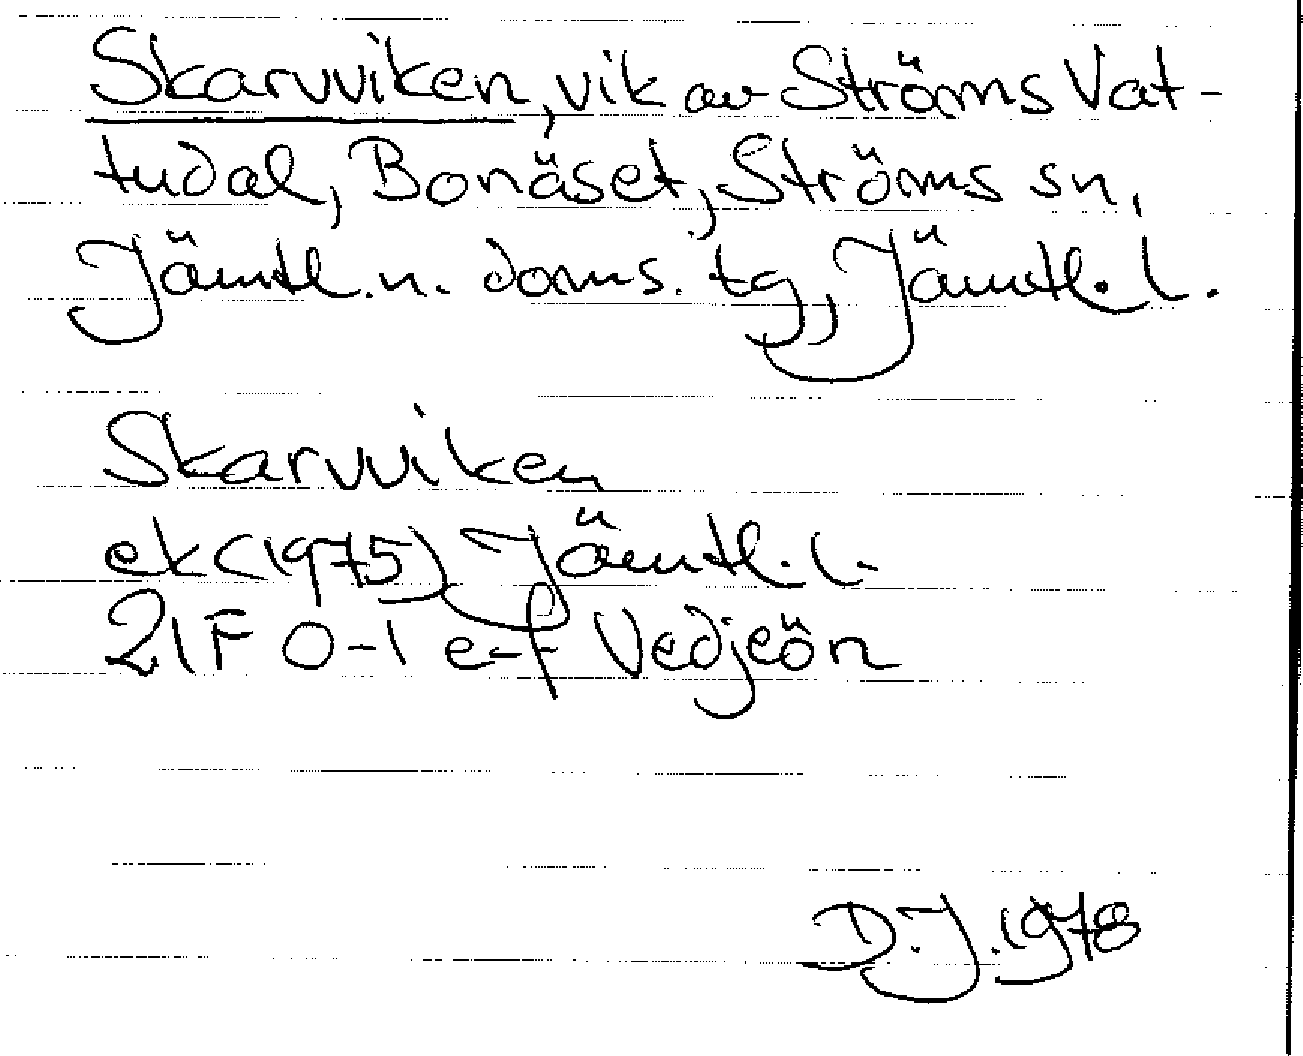 Skarvviken, vik av Ströms Vat-
tudal, Bonäset, Ströms sn,
Jämtl.n. doms. tg, Jämtl. l.
Skarvviken
ek (1975) Jämtl. l.
21F 0-1 e-f Vedjeön
D.J. 1978